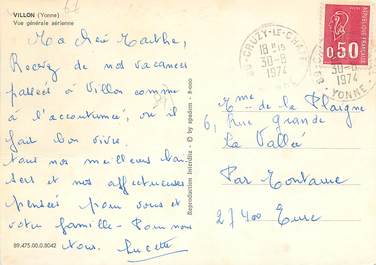 VILLON (Yonne)
Vue générale aérienne
Ma chère Marthe,
Recevez de nos vacances
passées à Villon comme
à l'accoutumée, où il
fait bon vivre.
Tous nos meilleurs bai
sers et nos affectueuses
pensées pour vous et
votre famille - Pour nous
tous. Lucette
89.475.00.0.8042
Reproduction Interdite - © by spadem - 8-000
CRUZY-LE-CHATEL
18 H 15
30-8
1974
YONNE
30-8
1974
YONNE
0,50
Mme de la Plaigne
6, rue grande
La Vallée
Par
27400 Eure